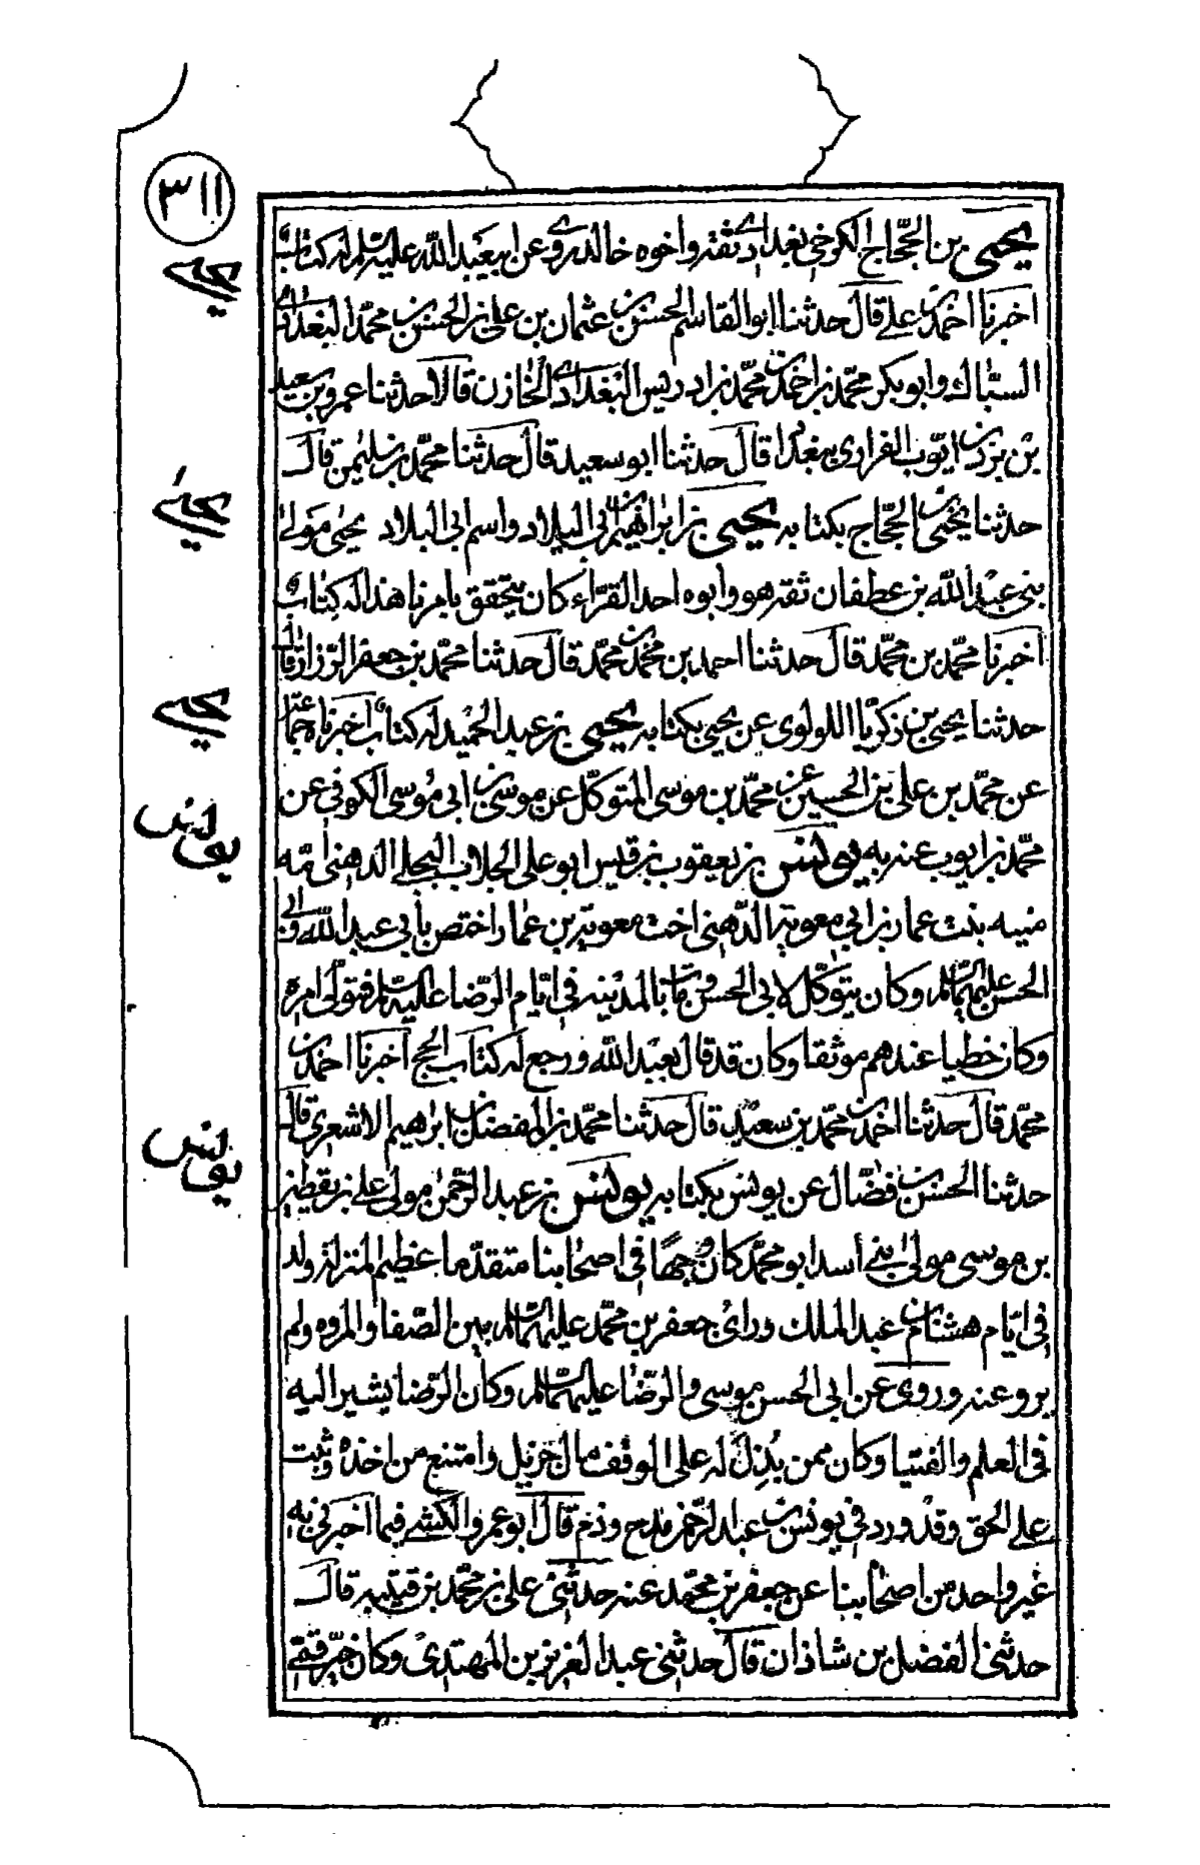 ٣١١
يحيى بن الحجاج الكوخي بغدادي ثقة واخوه خالد روى عن ابيعبد الله عليه السلم له كتاب
اخبرنا احمد بن علي قال حدثنا ابوالقاسم الحسن بن عثمان بن علي بن الحسن بن محمد البغدادي
السباك وابوبكر محمد بن احمد بن محمد بن ادريس البغدادي الخازن قالا حدثنا عمرو بن سعيد
بن بزد بن ايوب الفراري ببغداد قال حدثنا ابوسعيد قال حدثنا محمد بن سليمن قال
حدثنا يحيى بن الحجاج بكتابه يحيى بن ابراهيم بن ابي البلاد واسم ابي البلاد يحيى مولى
بنى عبد الله بن عطفان ثقة هو وابوه احد القراء كان يتحقق بامرنا هذا له كتاب
اخبرنا محمد بن محمد قال حدثنا احمد بن محمد بن محمد قال حدثنا محمد بن جعفر الرزاز قال
حدثنا يحيى بن زكريا اللولوى عن يحيى بكتابه يحيى بن عبد الحميد له كتاب اخبرنا جماعة
عن محمد بن على بن الحسين عن محمد بن موسى المتوكل عن موسى بن ابى موسى الكوفي عن
محمد بن ايوب عنه به يونس بن يعقوب بن قيس ابو علي الجلاب البجلي الدهنى امه
منيه بنت عمار بن ابي معوية الدهنى اخت معوية بن عمار اختص بابي عبد الله وابي
الحسن عليهما السلم وكان يتوكل لابي الحسن ومات بالمدينه في ايام الرضا عليه السلم فتولى امره
وكان خطيا عندهم موثقا وكان قد قال بعبد الله ورجع له كتاب الحج اخبرنا احمد بن
محمد قال حدثنا احمد بن محمد بن سعيد قال حدثنا محمد بن المفضل بن ابرهيم الاشعرى قال
حدثنا الحسن بن فضال عن يونس بكتابه يونس بن عبد الرحمن مولى علي بن يقطين
بن موسى مولى بني اسد ابو محمد كان وجها في اصحابنا متقدما عظيم المنزلة ولد
في ايام هشام بن عبد الملك وراى جعفر بن محمد عليهما السلم بين الصفا والمروه ولم
يرو عنه وروى عن ابي الحسن موسى والرضا عليهما السلم وكان الرضا يشير اليه
في العلم والفتيا وكان ممن بذل له على الوقف مال جزيل وامتنع من اخذه وثبت
على الحق وقد ورد في يونس بن عبد الرحمن مدح وذم قال ابو عمرو الكشي فيما اخبرني به
غير واحد من اصحابنا عن جعفر بن محمد عنه حدثني على بن محمد بن قتيبه قال
حدثني الفضل بن شاذان قال حدثني عبد العزيز بن المهتدى وكان خير قمي
يحيى
يحيى
يحيى
يونس
يونس